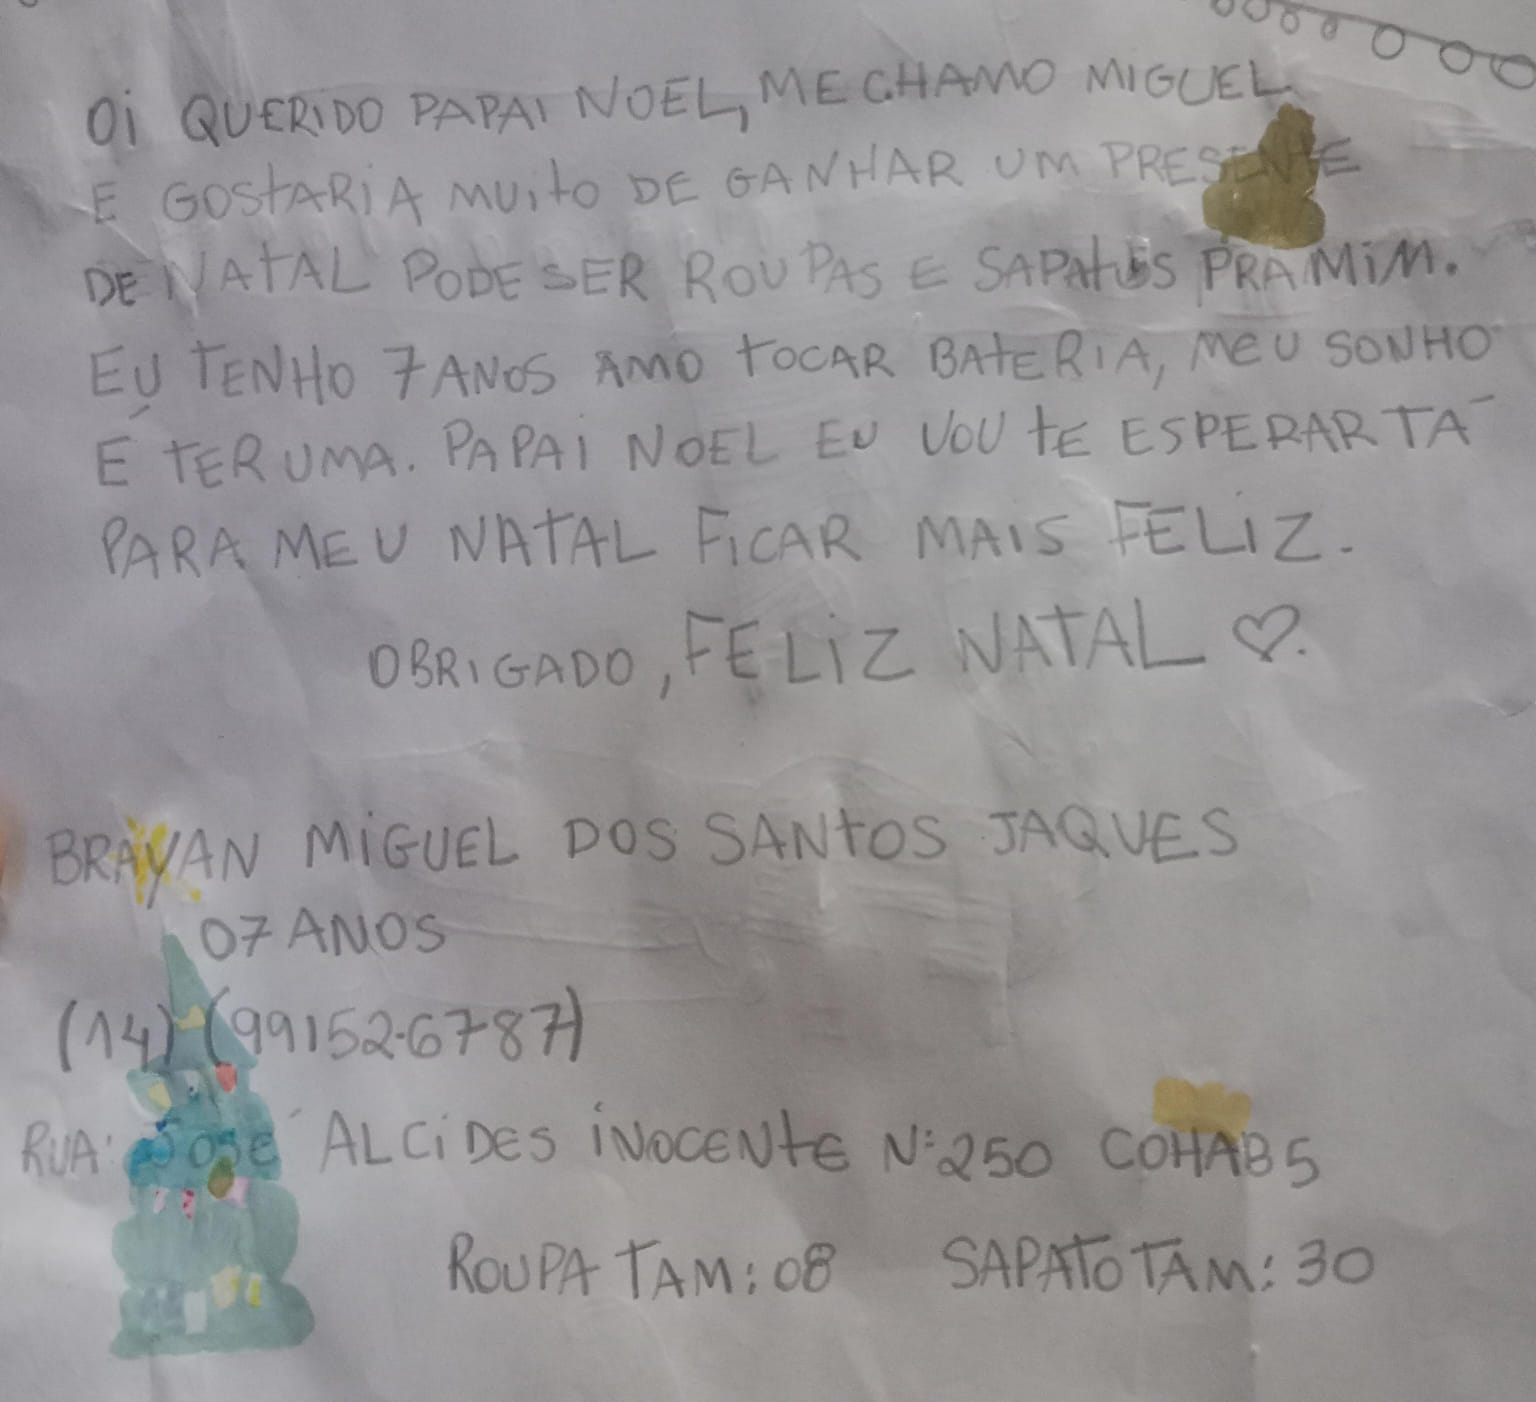 Oi QUERIDO PAPAI NOEL, ME CHAMO MIGUEL
E GOSTARIA MUITO DE GANHAR UM PRESENTE
DE NATAL PODE SER ROUPAS E SAPATOS PRA MIM.
EU TENHO 7 ANOS AMO TOCAR BATERIA, MEU SONHO
É TER UMA. PAPAI NOEL EU VOU TE ESPERAR TÁ
PARA MEU NATAL FICAR MAIS FELIZ.
OBRIGADO, FELIZ NATAL ♡.
BRAYAN MIGUEL DOS SANTOS JAQUES
07 ANOS
(14) (99152-6787)
RUA: JOSÉ ALCIDES INOCENTE Nº 250 COHAB 5
ROUPA TAM: 08 SAPATO TAM: 30